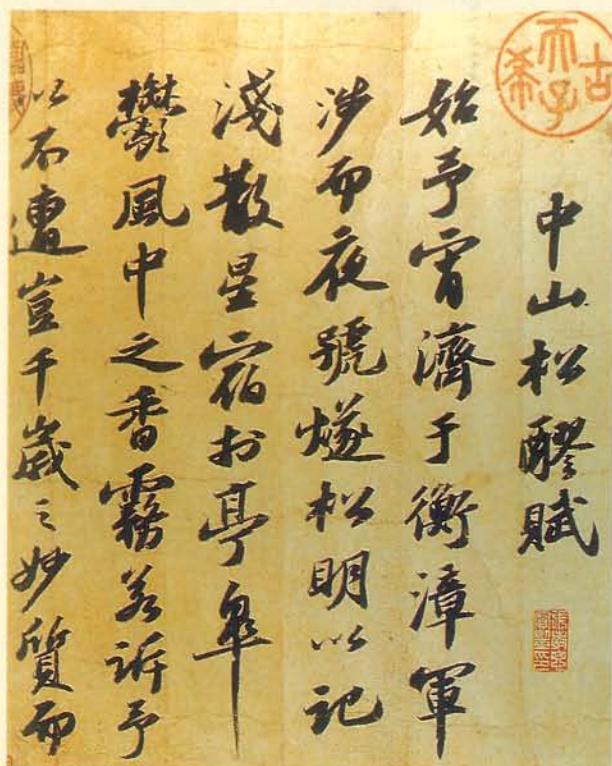 古希天子
中山松醪賦
始予宵濟于衡漳軍
涉而夜號燧松明以記
淺散星宿扵亭皐
鬱風中之香霧若訴予
以不遭豈千歲之妙質而